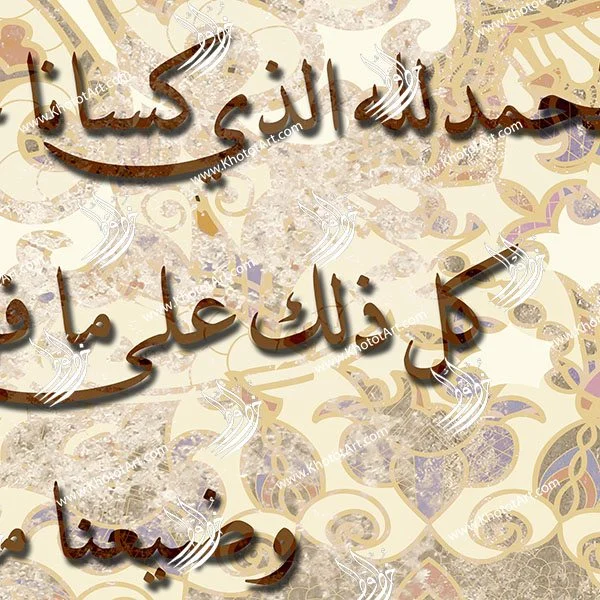 حمد لله الذي كسانا
كل ذلك على ما
وضيعنا
www.KhototArt.com